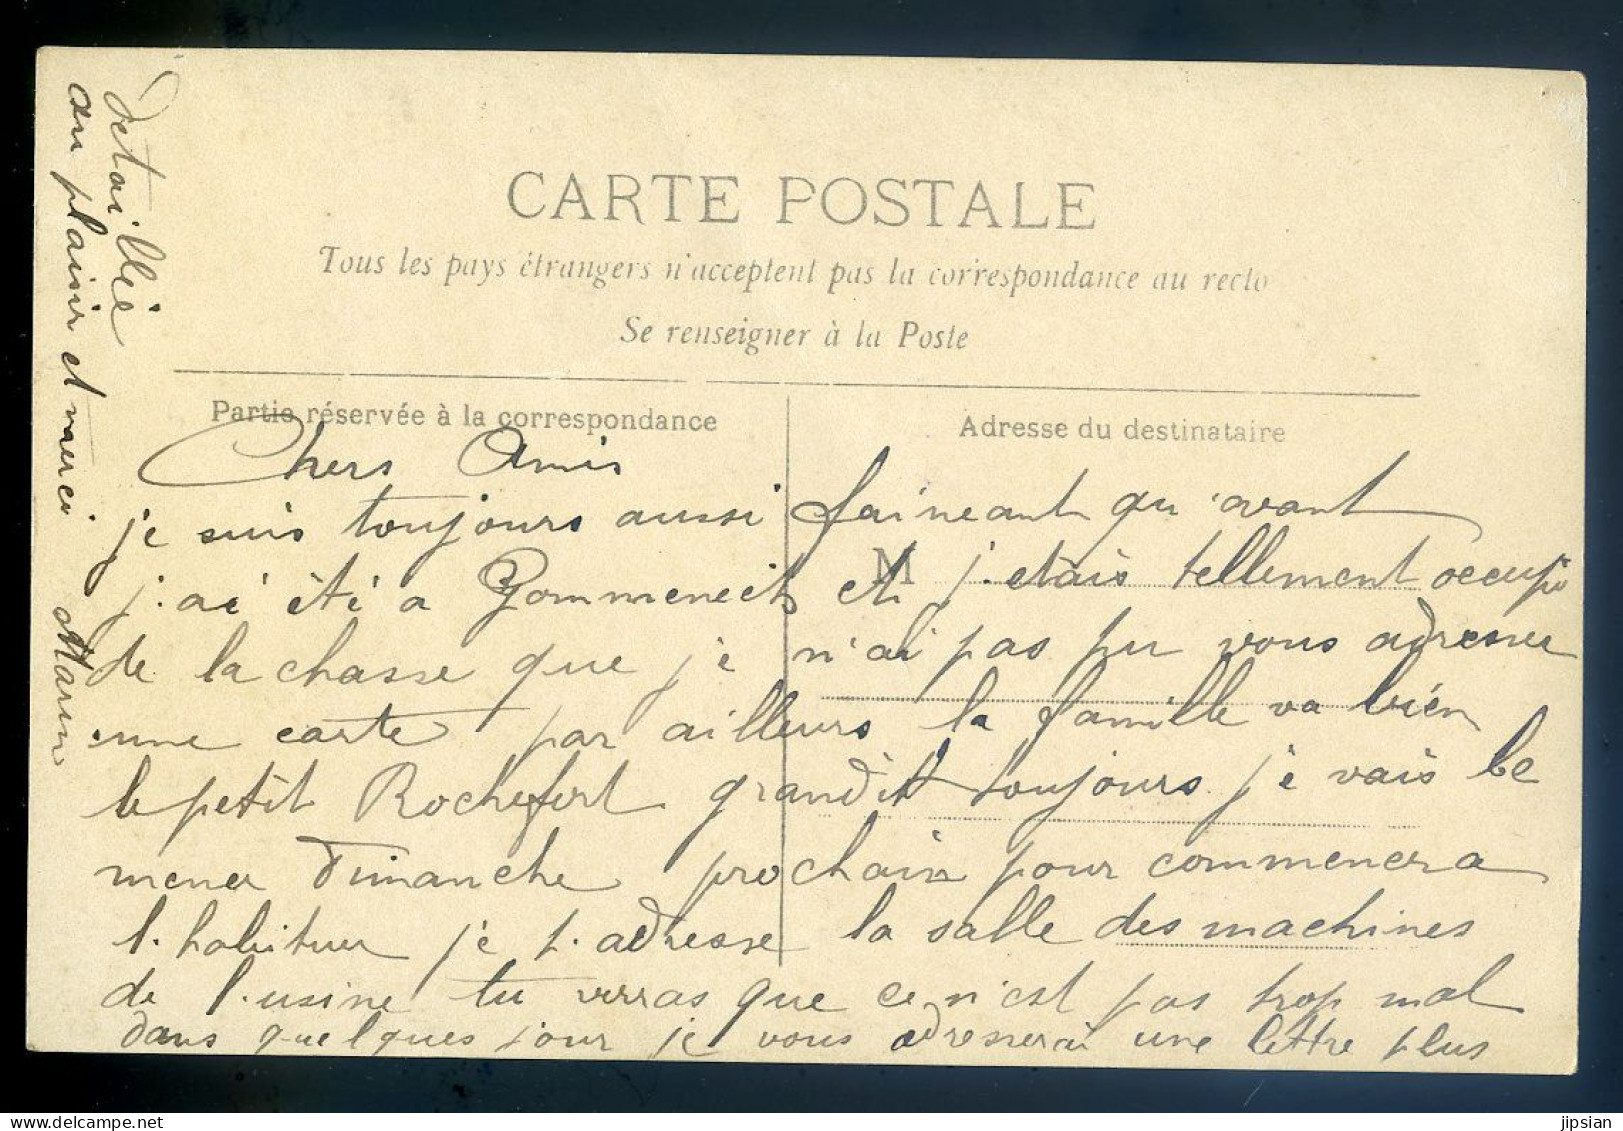 CARTE POSTALE
Tous les pays étrangers n'acceptent pas la correspondance au recto
Se renseigner à la Poste
Partie réservée à la correspondance
Adresse du destinataire
M
Chers Amis
je suis toujours aussi faineant qu'avant
j'ai été a et j'etais tellement occupé
de la chasse que je n'ai pas pu vous adresser
une carte par ailleurs la famille va bien
le petit Rochefort grandit toujours je vais le
mener Dimanche prochain pour commencer a
l'habituer je t'adresse la salle des machines
de l'usine tu verras que ce n'est pas trop mal
dans quelques jour je vous adresserai une lettre plus
detaillée
au plaisir et merci
jipsian